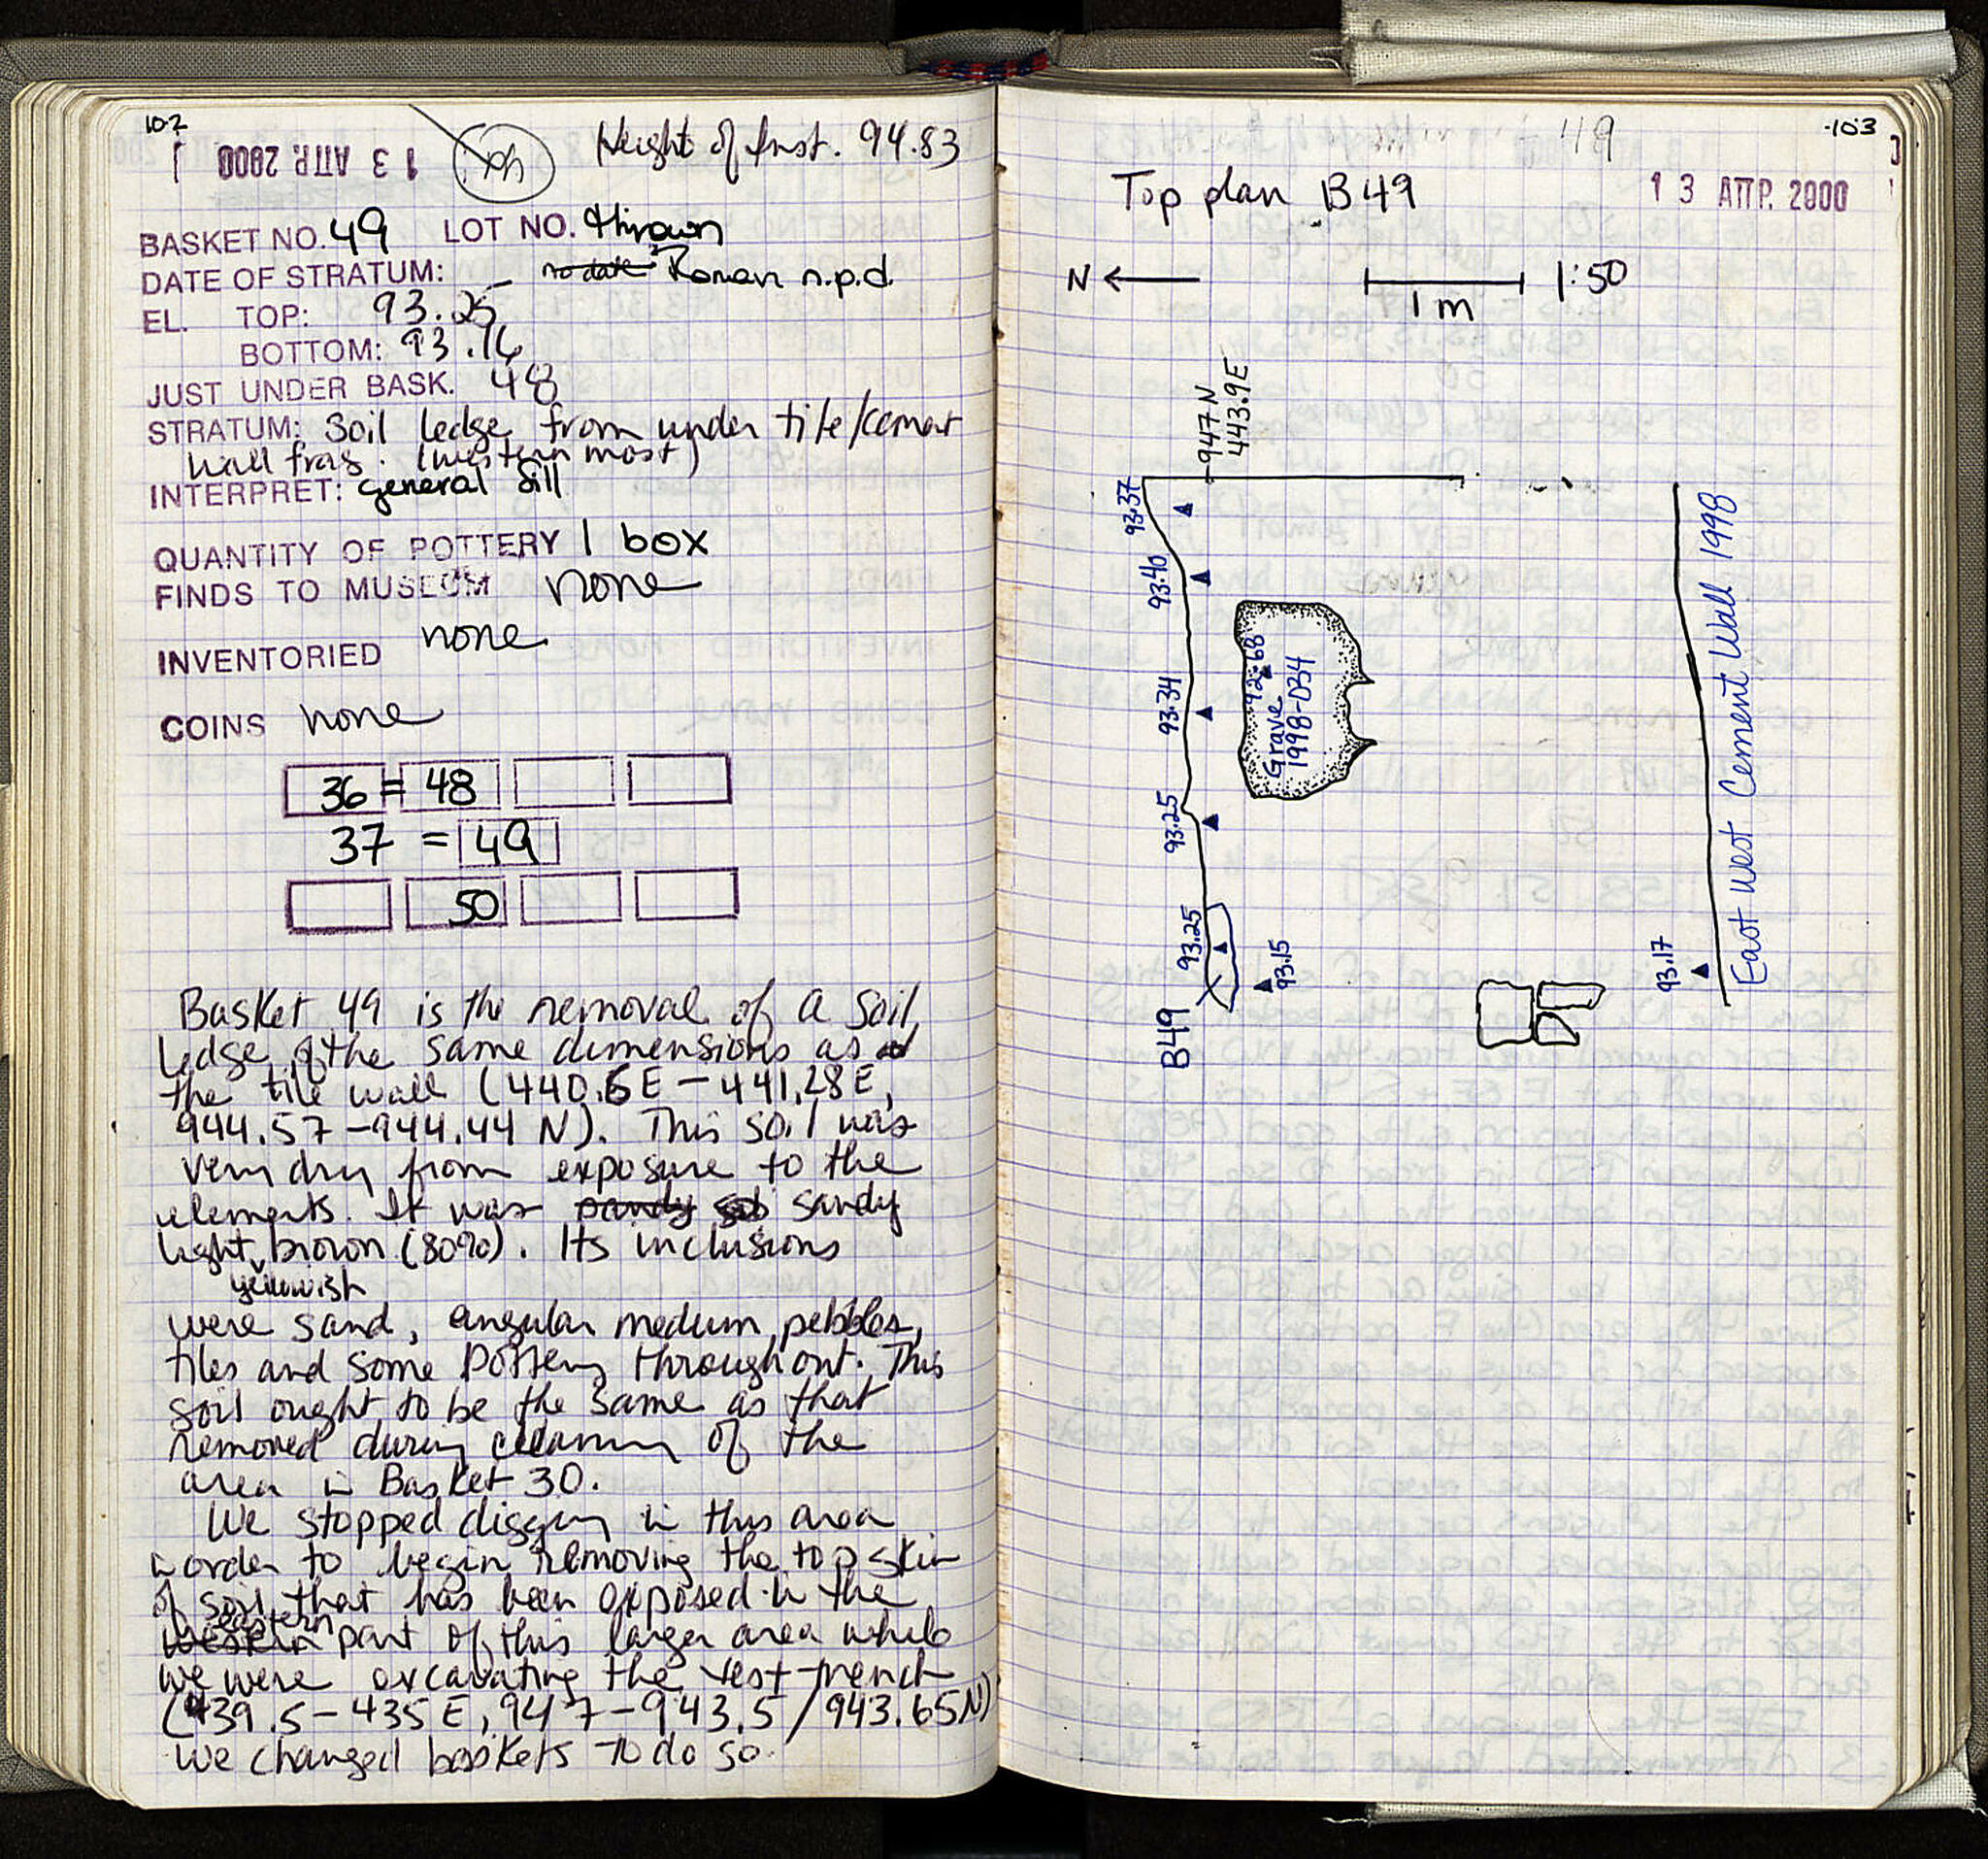 102
13 ΑΠΡ. 2000
Height of Inst. 94.83
BASKET NO. 49 LOT NO. thrown
DATE OF STRATUM: no date Roman n.p.d.
EL. TOP: 93.25
BOTTOM: 93.16
JUST UNDER BASK. 48
STRATUM: Soil ledge from under tile/cement
wall frag. (western most)
INTERPRET: general fill
QUANTITY OF POTTERY 1 box
FINDS TO MUSEUM none
INVENTORIED none
COINS none
36 = 48
37 = 49
50
Basket 49 is the removal of a soil
ledge of the same dimensions as
the tile wall (440.6E – 441.28E,
944.57–944.44 N). This soil was
very dry from exposure to the
elements. It was sandy sandy
light brown (80%). Its inclusions
yellowish
were sand, angular medium pebbles,
tiles and some pottery throughout. This
soil ought to be the same as that
removed during cleaning of the
area in Basket 30.
We stopped digging in this area
in order to begin removing the top skin
of soil that has been exposed in the
eastern
western part of this larger area while
we were excavating the test trench
(439.5–435 E, 947–943.5/943.65N)
We changed baskets to do so.
103
49
Top plan B49
13 ΑΠΡ. 2000
N
1 m
1:50
947N
443.9E
93.37
93.40
93.34
93.25
93.25
93.15
B49
92.68
Grave
1998-034
93.17
East West Cement Wall 1998